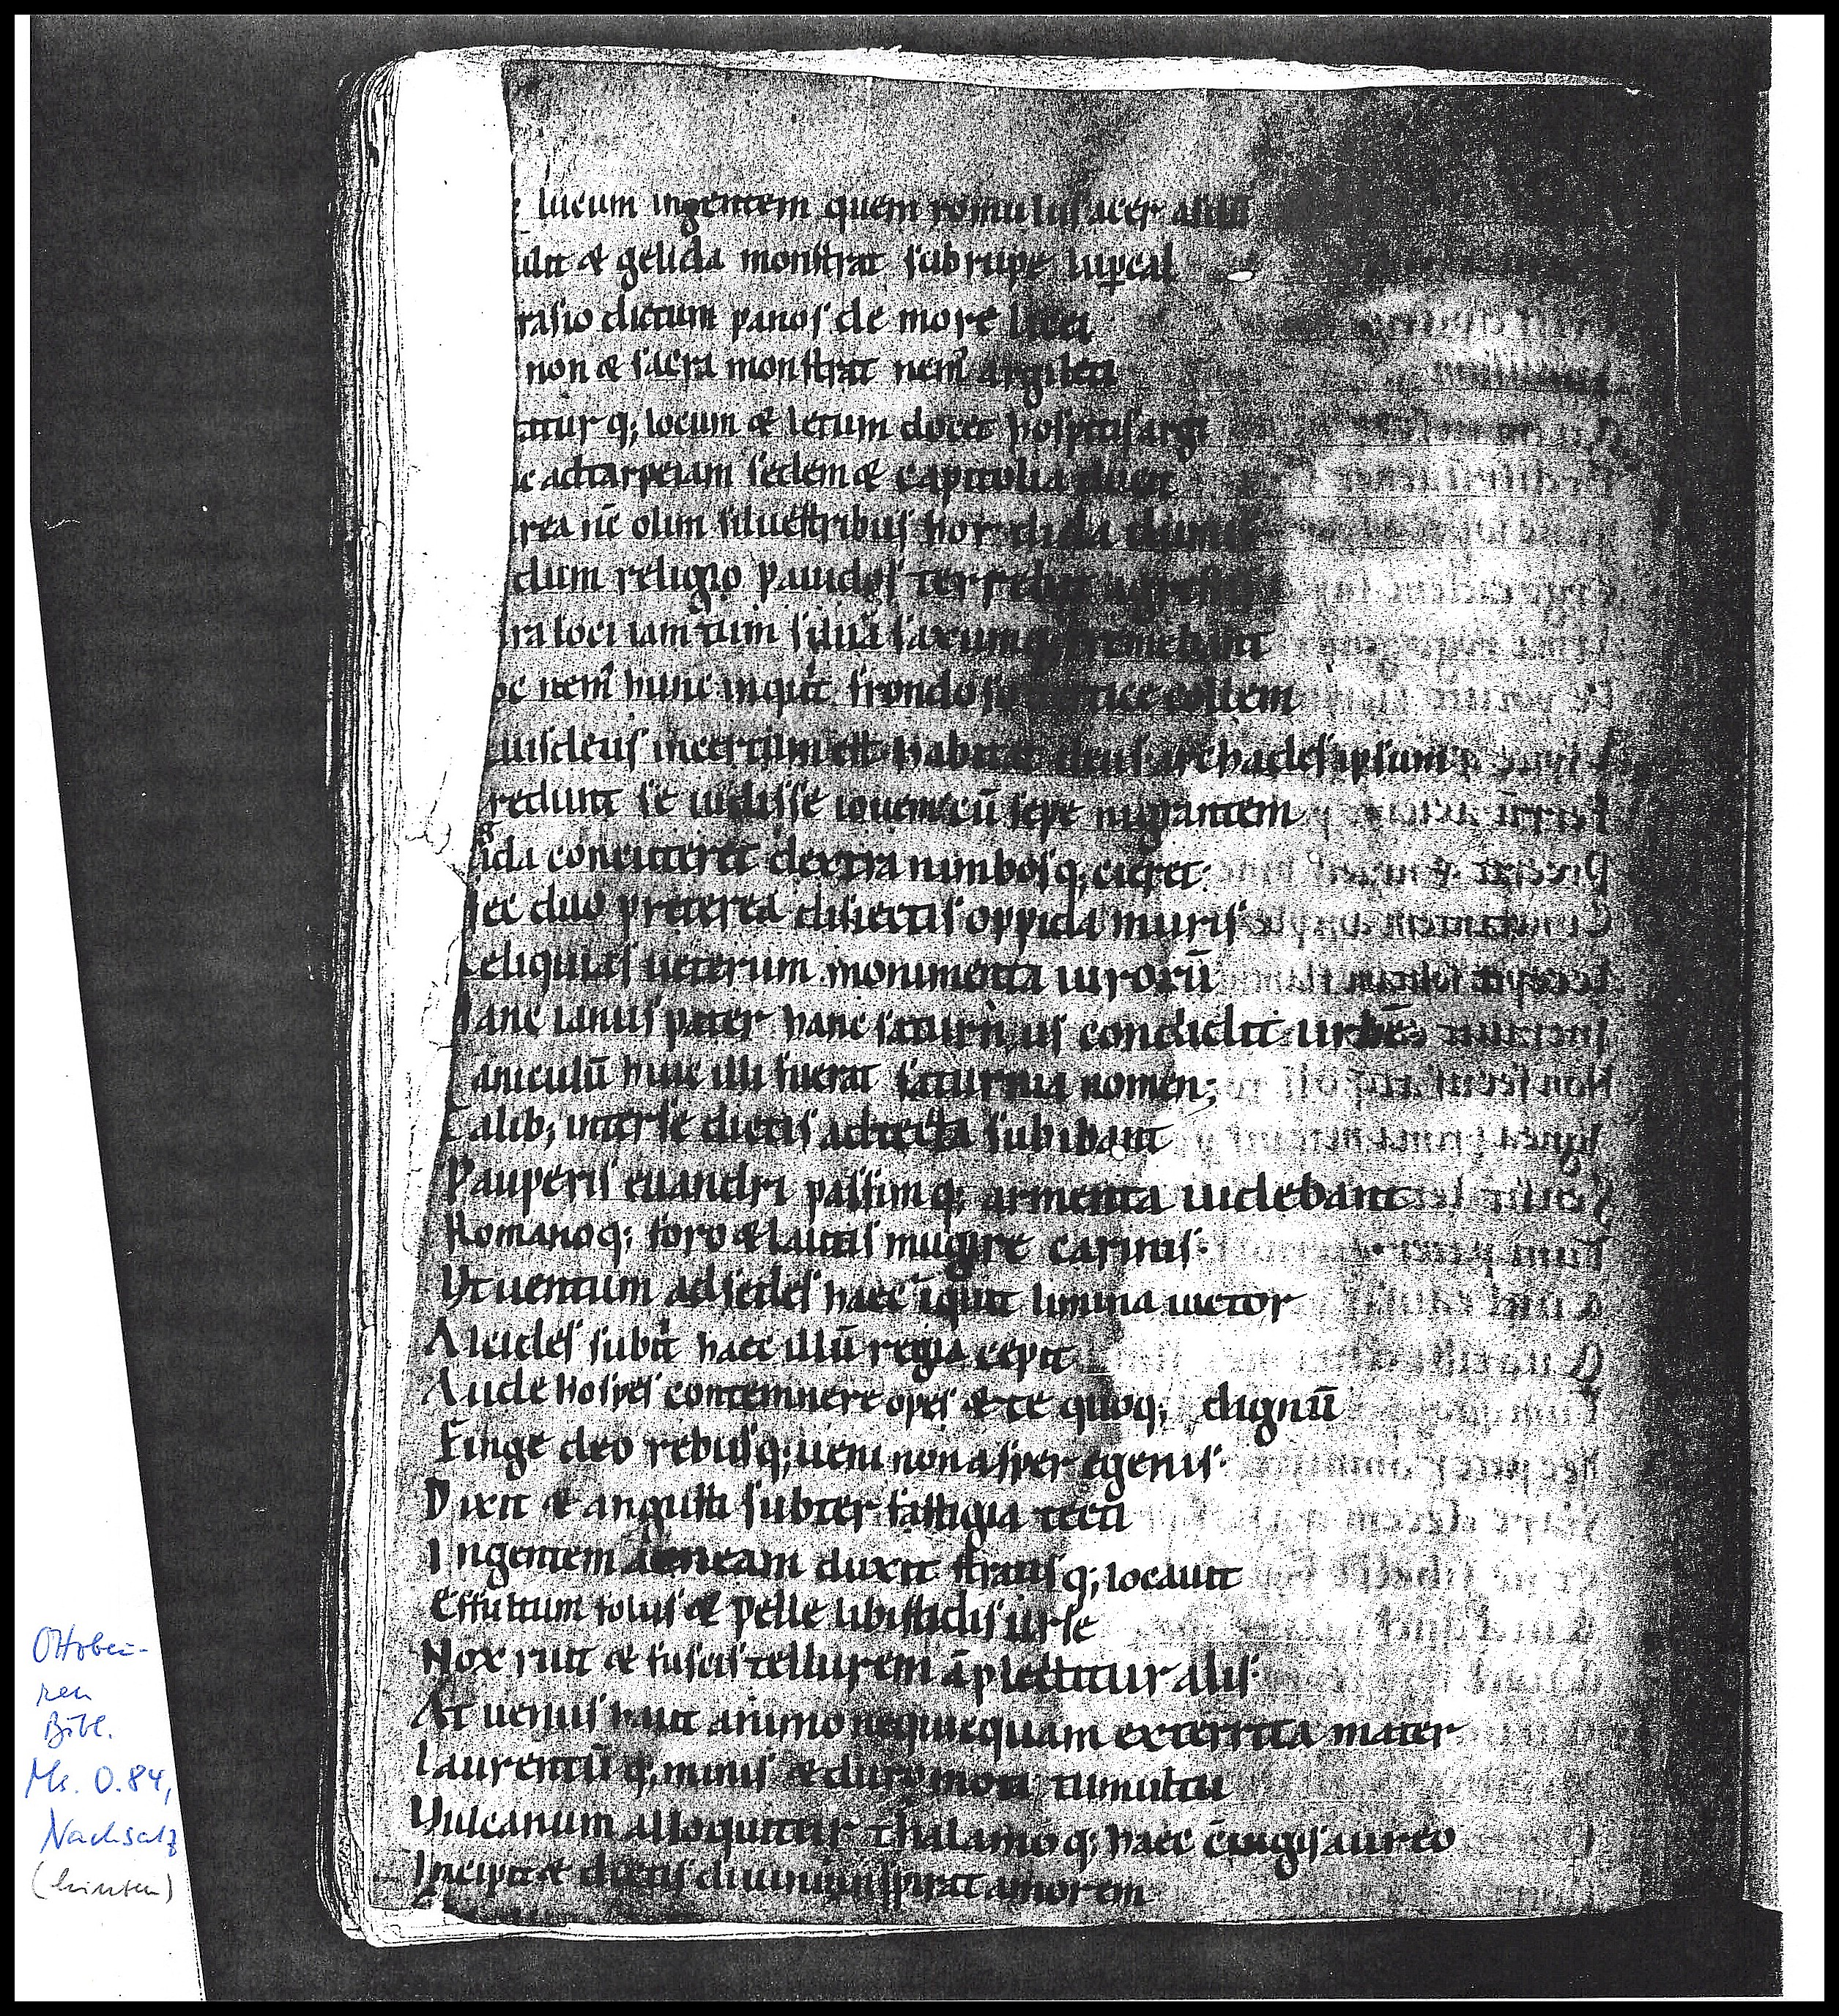 lucum ingentem quem romulus acer asilũ
ulit & gelida monstrat sub rupe lupcal
rasio dictum panos de more licei
non & sacra monstrat nem' argileti
tatur q; locum & letum docet hospitis argi
c ad tarpeiam sedem & capitolia ducit
rea nc̄ olim siluestribus horrida dumis
dum religio pauidos terrebat agrestis
ra loci iam tum siluã saxum q; tremebant
oc nem' hunc inquit frondoso uertice collem
uis deus incertum est habitat deus archades ipsum
redunt se uidisse iouem cũ sepe nigrantem
ida concuteret dextra nimbosq; cieret.
ec duo preterea disiectis oppida muris
eliquias ueterum monimenta uirorũ
anc ianus pater hanc saturnus condidit urbẽ
aniculũ huic illi fuerat saturnia nomen;
Talib; inter se dictis ad tecta subibant
Pauperis euandri passim q; armenta uidebant
Romanoq; foro & lautis mugire carinis.
Vt uentum ad sedes haec īquit limina uictor
Alcides subit haec illũ regia cepit
Aude hospes contemnere opes & te quoq; dignũ
Finge deo rebusq; ueni non asper egenis.
Dixit & angusti subter fastigia tecti
Ingentem aeneam duxit stratisq; locauit
Effultum foliis & pelle libistidis urse
Nox ruit & fuscis tellurem āplectitur alis.
At uenus haut animo nequiequam exterrita mater
Laurentũ q; minis & duro mota tumultu
Vulcanum alloquitur thalamo q; haec c̄iugis aureo
Incipit & dictis diuinum spirat amorem
Ottobeu-
ren
Bibl.
Ms. O.84,
Nachsatz
(hinten)